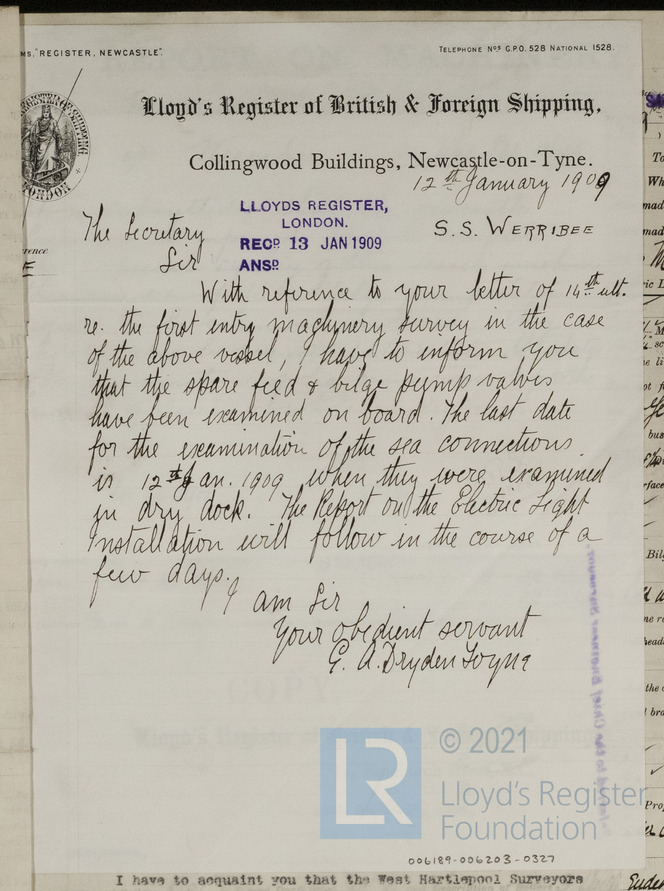 MS. "REGISTER, NEWCASTLE".
TELEPHONE Nos G.P.O. 528 NATIONAL 1528.
Lloyd's Register of British & Foreign Shipping,
Collingwood Buildings, Newcastle-on-Tyne.
12th January 1909
LLOYDS REGISTER,
LONDON.
RECD. 13 JAN 1909
ANSD.
S.S. WERRIBEE
The Secretary
Sir
With reference to your letter of 14th ult.
re. the first entry machinery survey in the case
of the above vessel, I have to inform you
that the spare feed & bilge pump valves
have been examined on board. The last date
for the examination of the sea connections
is 12th Jan. 1909 when they were examined
in dry dock. The Report on the Electric Light
Installation will follow in the course of a
few days.
I am Sir
Your obedient servant
G. A. Dryden Foyne
COPY.
© 2021
LR
Lloyd's Register
Foundation
006189-006203-0327
I have to acquaint you that the West Hartlepool Surveyors